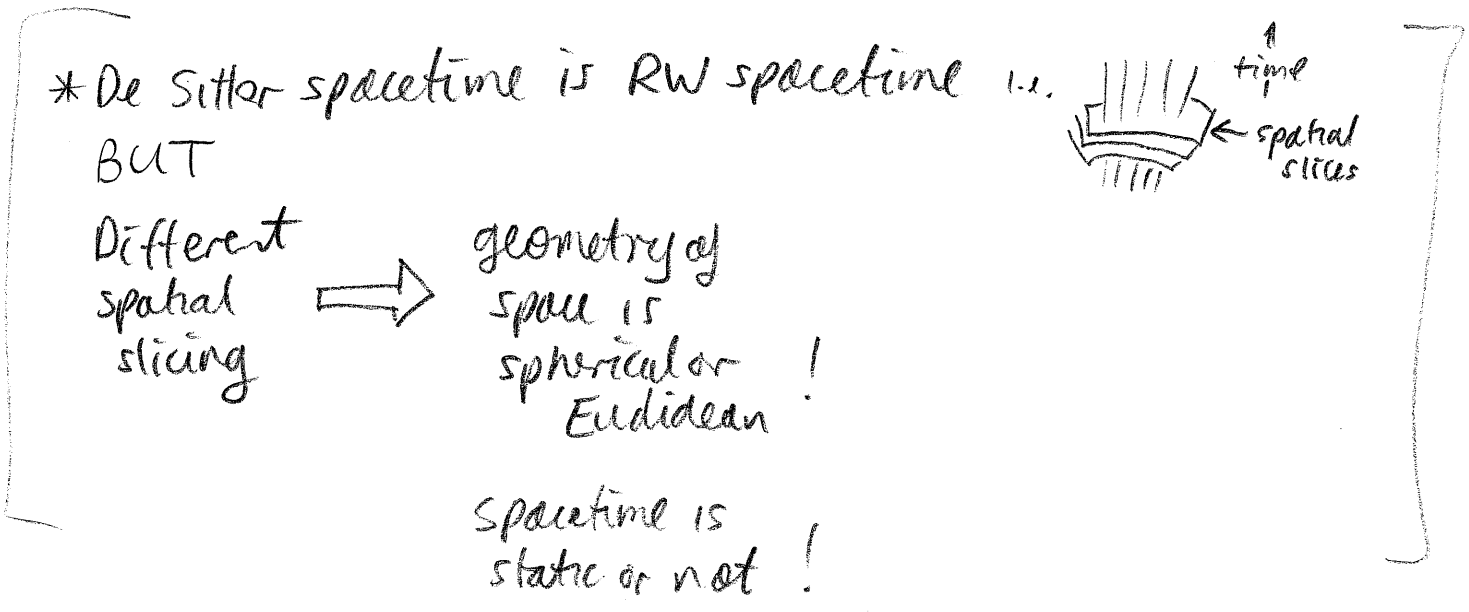 * De Sitter spacetime is RW spacetime i.e.
time
spatial
slices
BUT
Different
spatial
slicing
geometry of
space is
spherical or
Euclidean !
spacetime is
static or not !